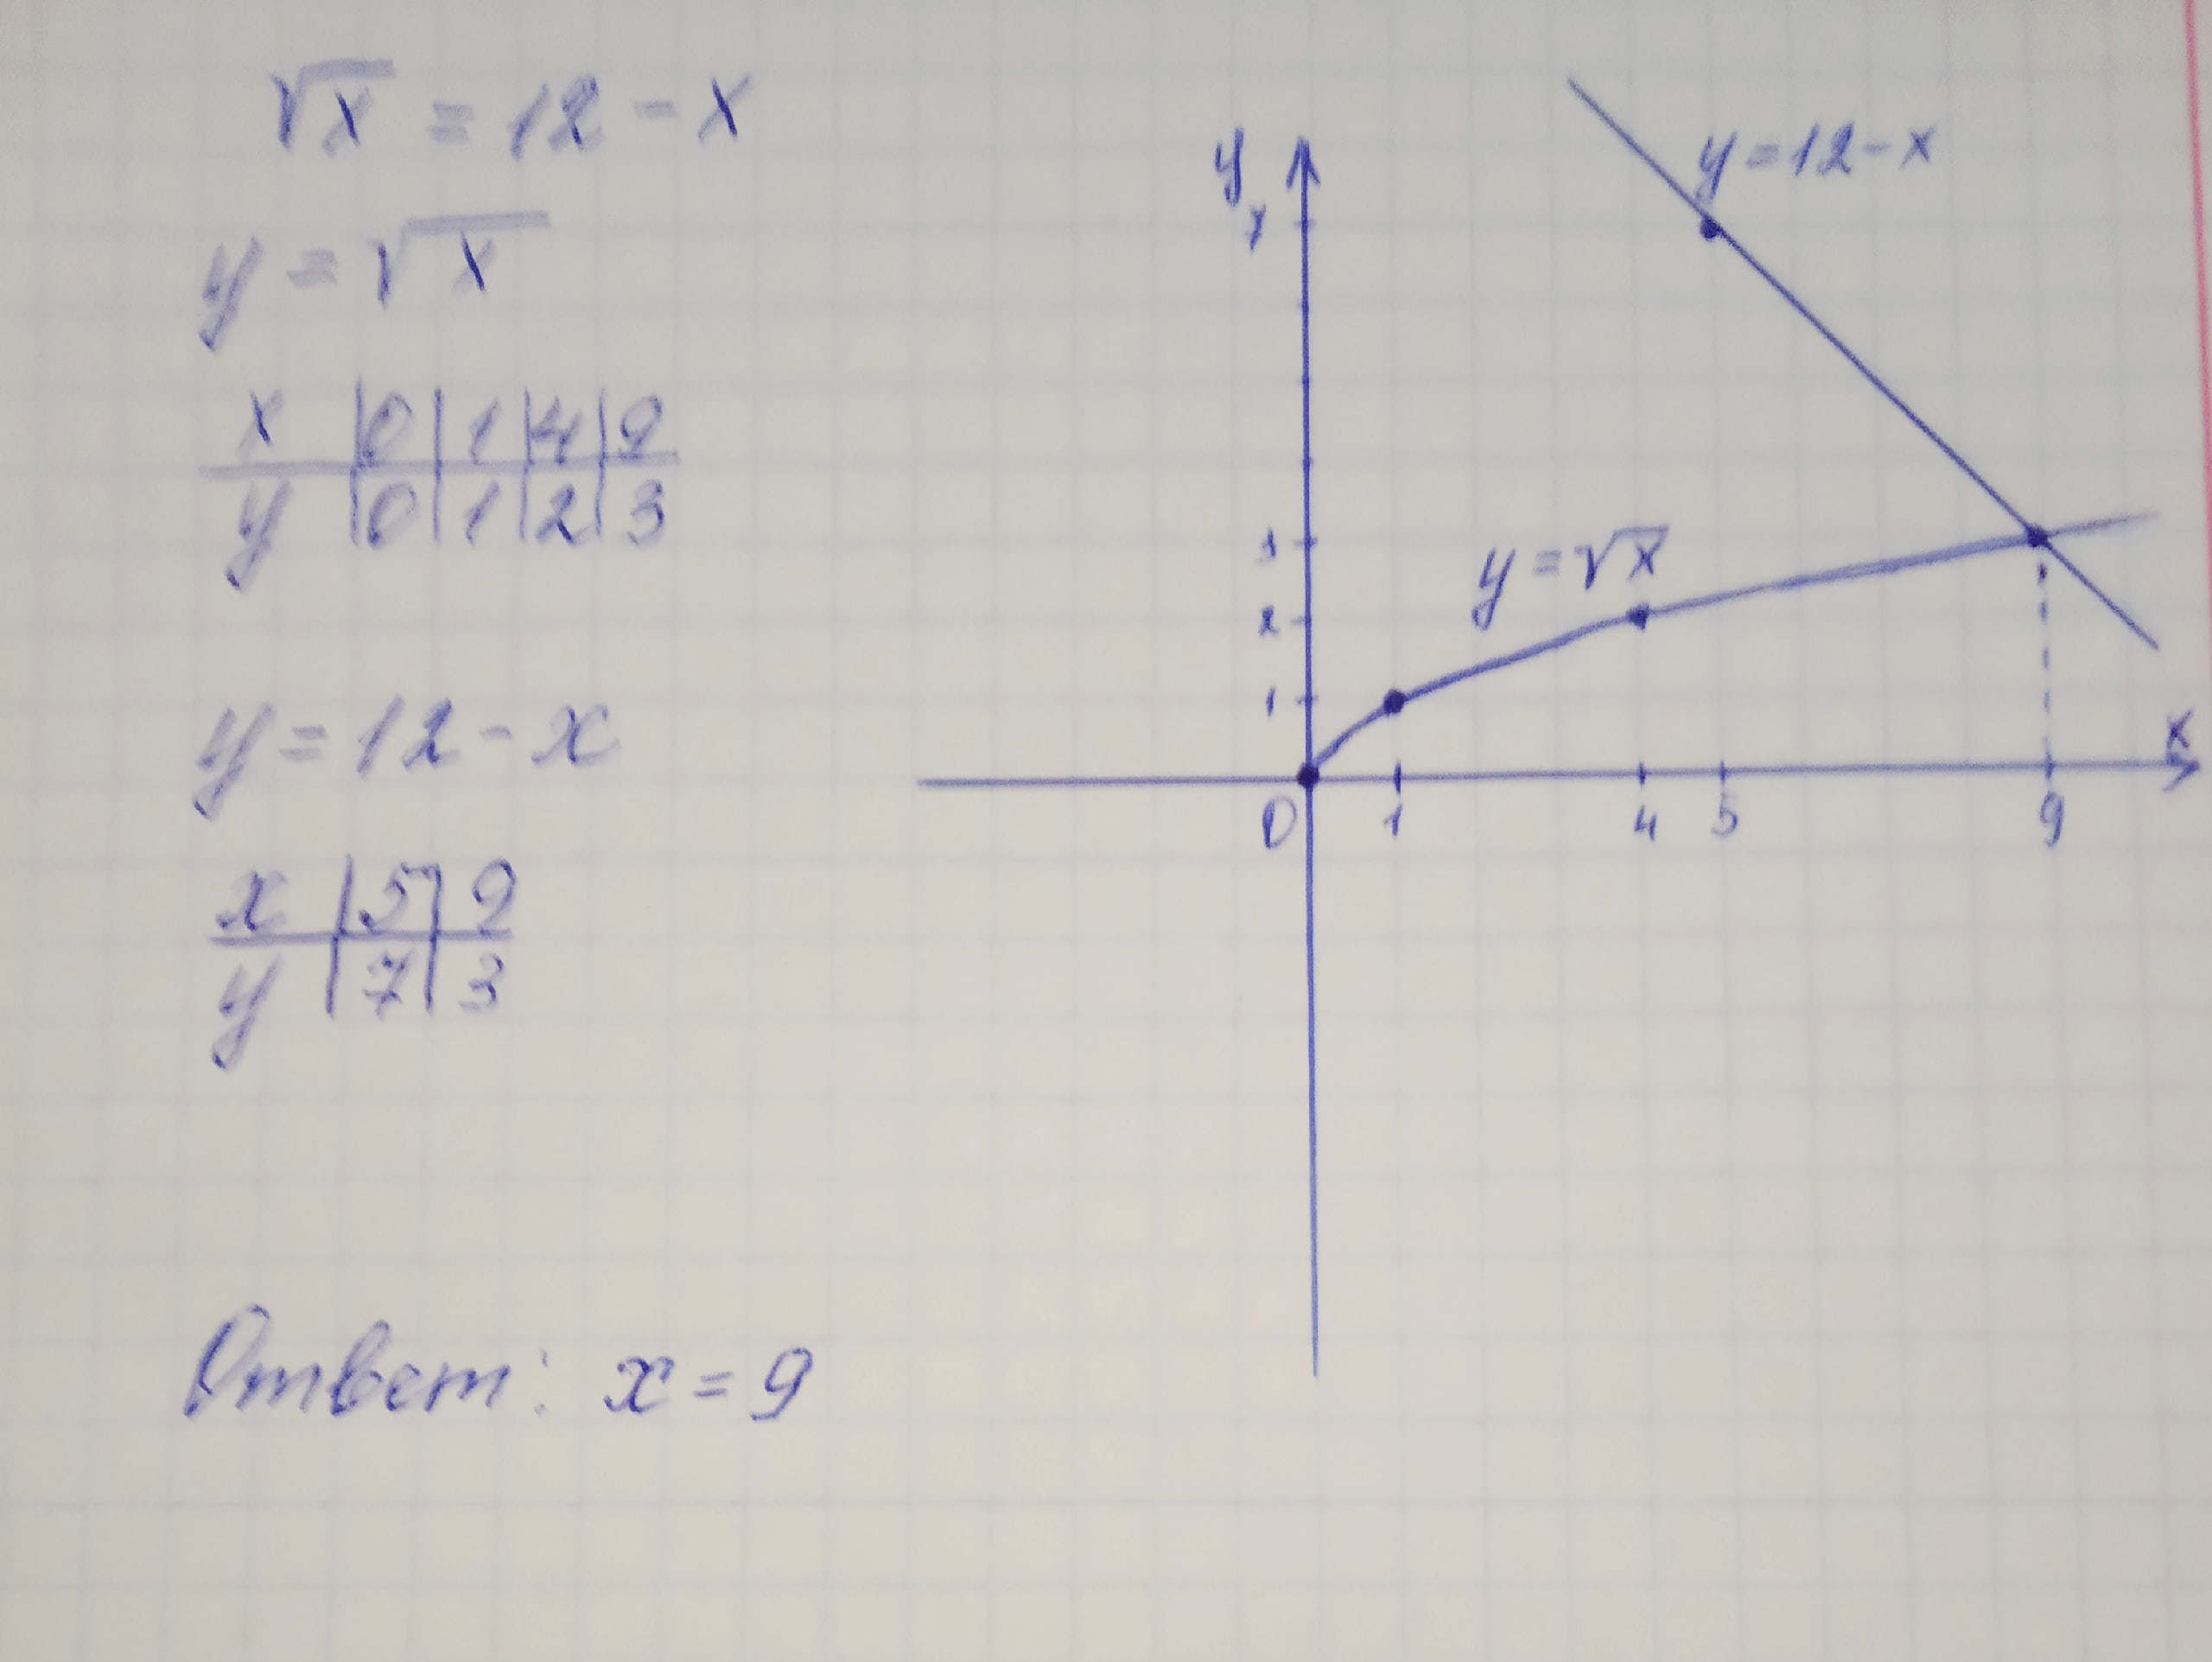 √x = 12 - x
y = √x
x | 0 | 1 | 4 | 9
y | 0 | 1 | 2 | 3
y = 12 - x
x | 5 | 9
y | 7 | 3
Ответ: x = 9
y
7
3
2
1
0 1 4 5 9
x
y = 12 - x
y = √x